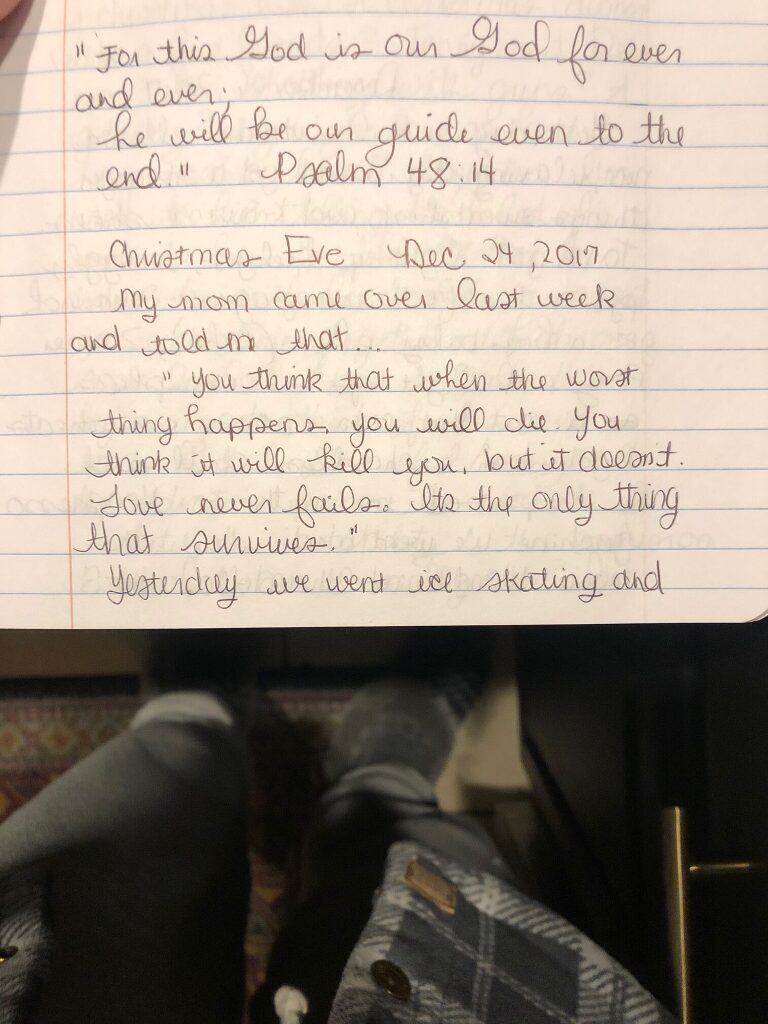 "For this God is our God for ever
and ever;
he will be our guide even to the
end." Psalm 48:14
Christmas Eve Dec 24, 2017
My mom came over last week
and told me that...
"You think that when the worst
thing happens, you will die. You
think it will kill you, but it doesnt.
Love never fails. Its the only thing
that survives."
Yesterday we went ice skating and